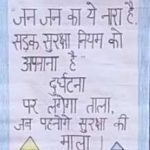 "जन जन का ये नारा है,
सड़क सुरक्षा नियम को
अपनाना है"
दुर्घटना
पर लगेगा ताला,
जब पहनोगे सुरक्षा की
माला।